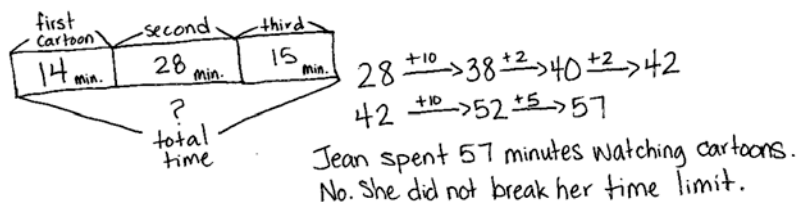 first cartoon
second
third
14 min.
28 min.
15 min.
?
total
time
28 +10→ 38 +2→ 40 +2→ 42
42 +10→ 52 +5→ 57
Jean spent 57 minutes watching cartoons.
No. She did not break her time limit.